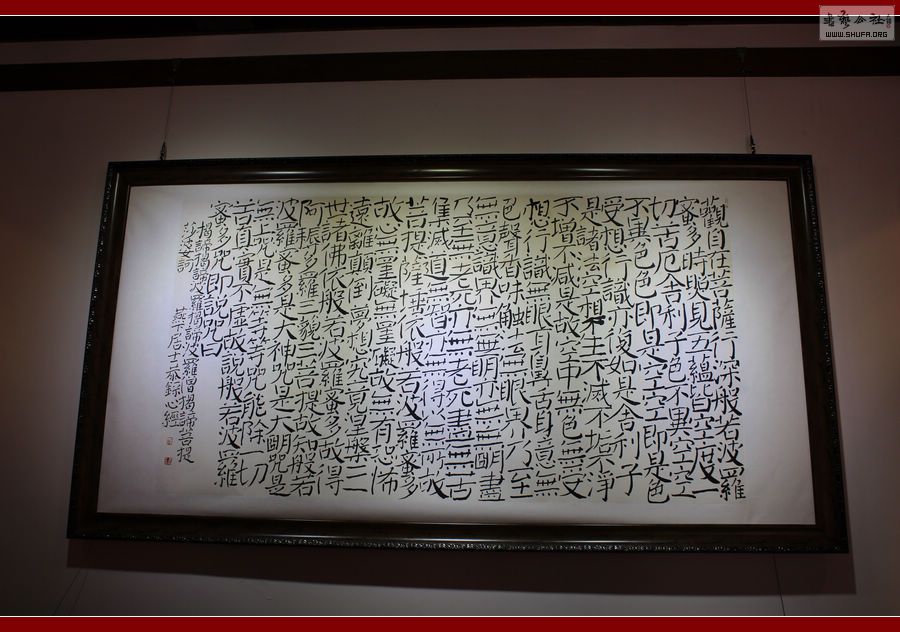 書藝公社
WWW.SHUFA.ORG
觀自在菩薩行深般若波羅
蜜多時照見五蘊皆空度一
切苦厄舍利子色不異空空
不異色色即是空空即是色
受想行識亦復如是舍利子
是諸法空想不生不滅不垢不淨
不增不減是故空中無色無受
想行識無眼耳鼻舌身意無
色聲香味觸法無眼界乃至
無意識界無無明亦無無明盡
乃至無老死亦無老死盡無苦
集滅道無智亦無得以無所得故
菩提薩埵依般若波羅蜜多
故心無罣礙無罣礙故無有恐怖
遠離顛倒夢想究竟涅槃三
世諸佛依般若波羅蜜多故得
阿耨多羅三藐三菩提故知般若
波羅蜜多是大神咒是大明咒是
無上咒是無等等咒能除一切
苦真實不虛故說般若波羅
蜜多咒即說咒曰
揭諦揭諦波羅揭諦波羅僧揭諦菩提
娑婆訶 居士敬錄心經